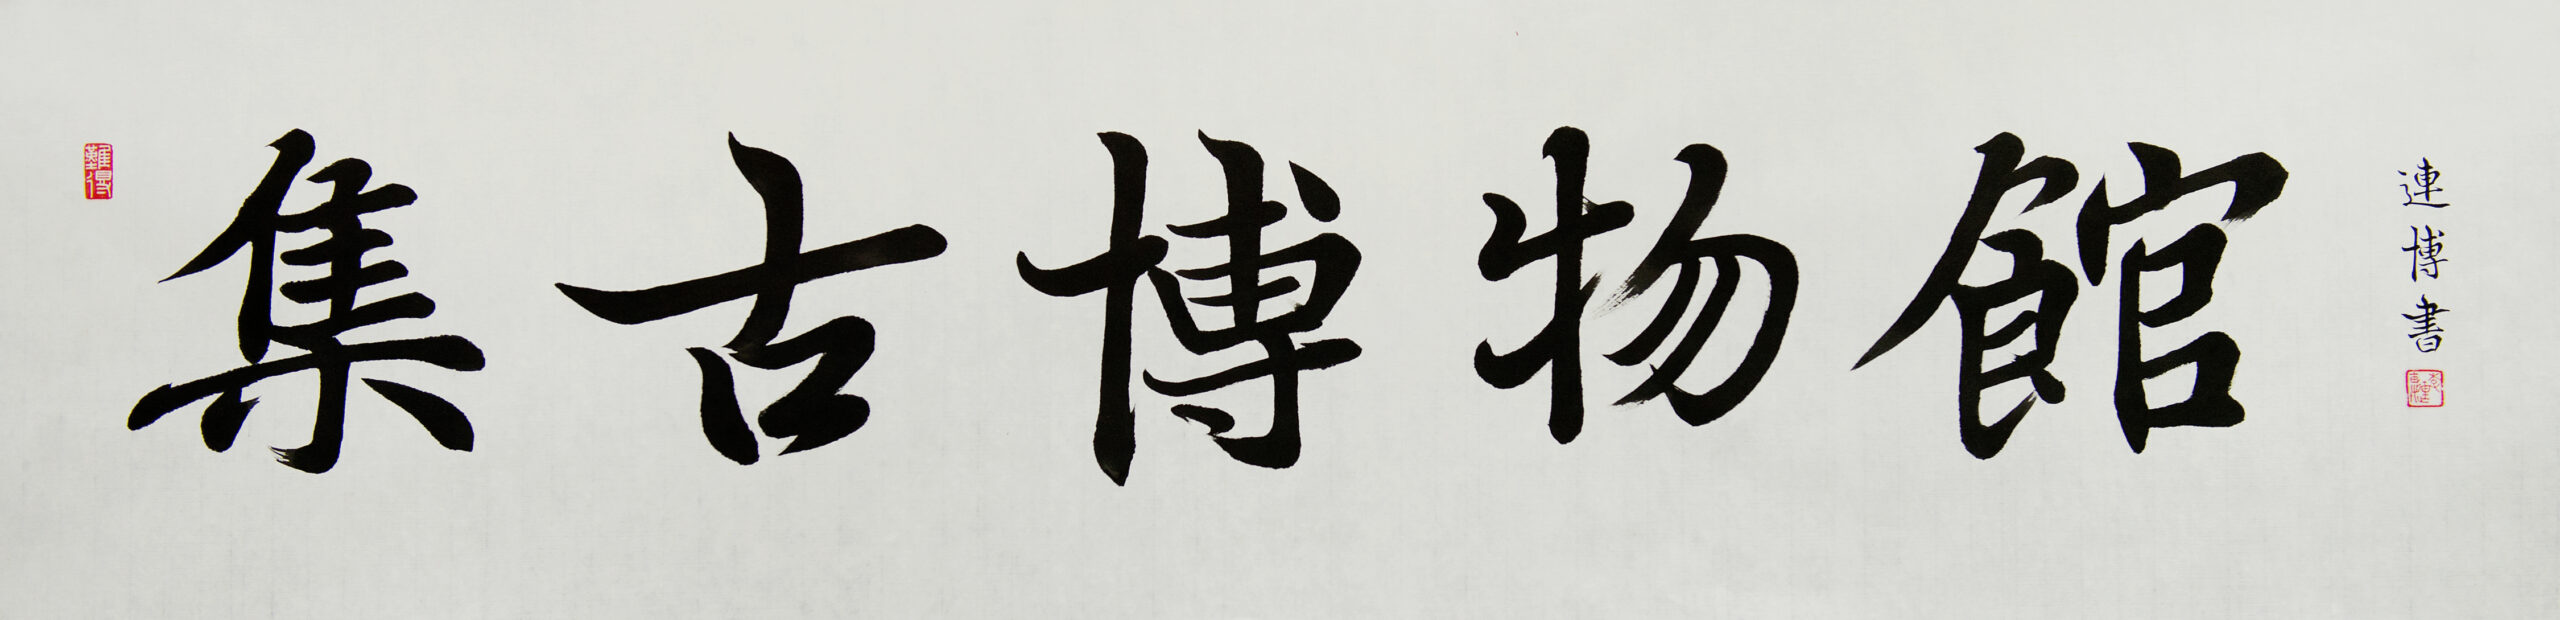 難得
集古博物館
連博書